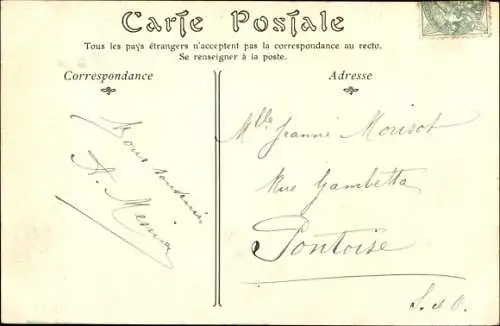 Carte Postale
Tous les pays étrangers n'acceptent pas la correspondance au recto.
Se renseigner à la poste.
Correspondance
Adresse
Bons souvenirs
A.
Mlle Jeanne Morisot
Rue Gambetta
Pontoise
S. et O.